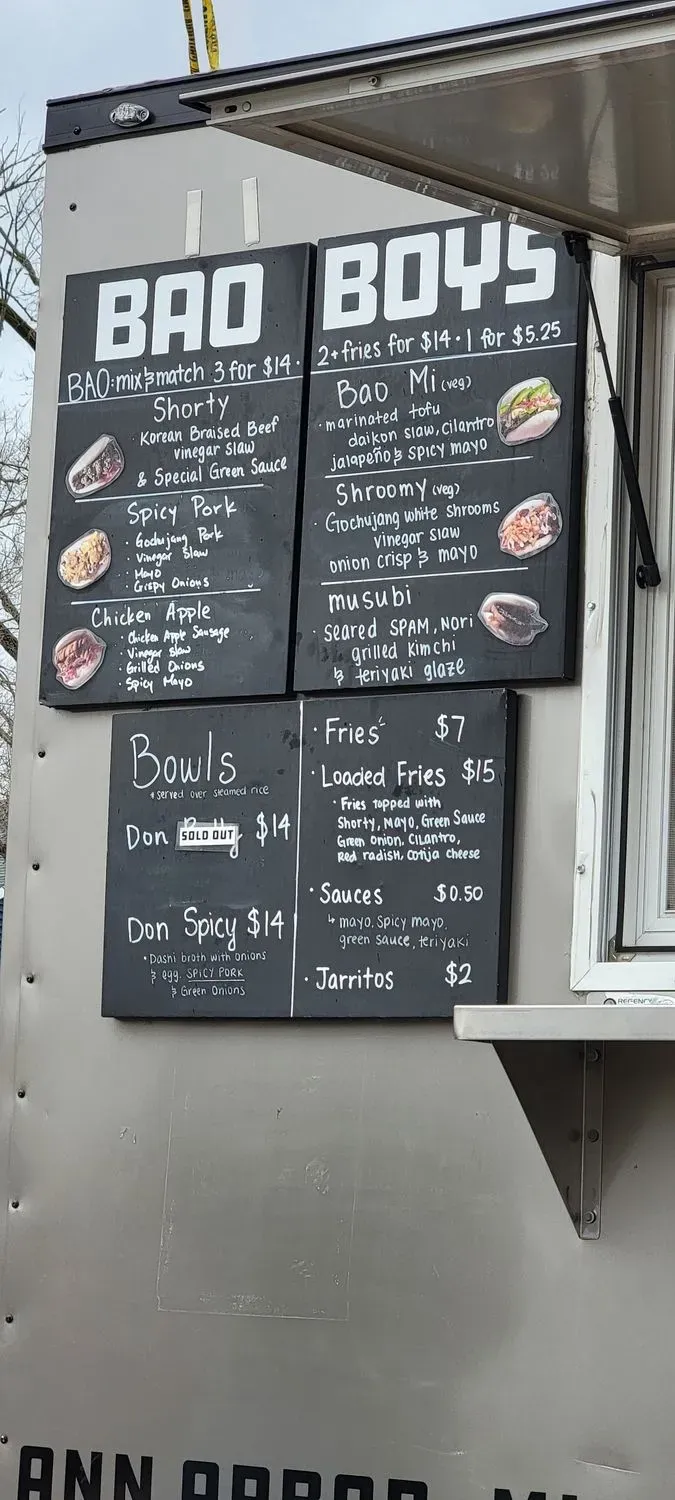 BAO BOYS
BAO: mix & match 3 for $14 • 2 + fries for $14 • 1 for $5.25
Shorty
• Korean Braised Beef
vinegar slaw
& Special Green Sauce
Spicy Pork
• Gochujang Pork
• Vinegar Slaw
• Mayo
• Crispy Onions
Chicken Apple
• Chicken Apple Sausage
• Vinegar slaw
• Grilled Onions
• Spicy Mayo
Bao Mi (veg)
• marinated tofu
daikon slaw, cilantro
jalapeño & spicy mayo
Shroomy (veg)
• Gochujang white shrooms
vinegar slaw
onion crisp & mayo
musubi
• seared SPAM, Nori
grilled Kimchi
& teriyaki glaze
Bowls
* served over steamed rice
Don SOLD OUT $14
Don Spicy $14
• Dashi broth with onions
& egg. SPICY PORK
& Green Onions
• Fries $7
• Loaded Fries $15
• Fries topped with
Shorty, Mayo, Green Sauce
Green onion, Cilantro,
Red radish, Cotija cheese
• Sauces $0.50
↳ mayo, spicy mayo,
green sauce, teriyaki
• Jarritos $2
REGENCY
ANN ARBOR